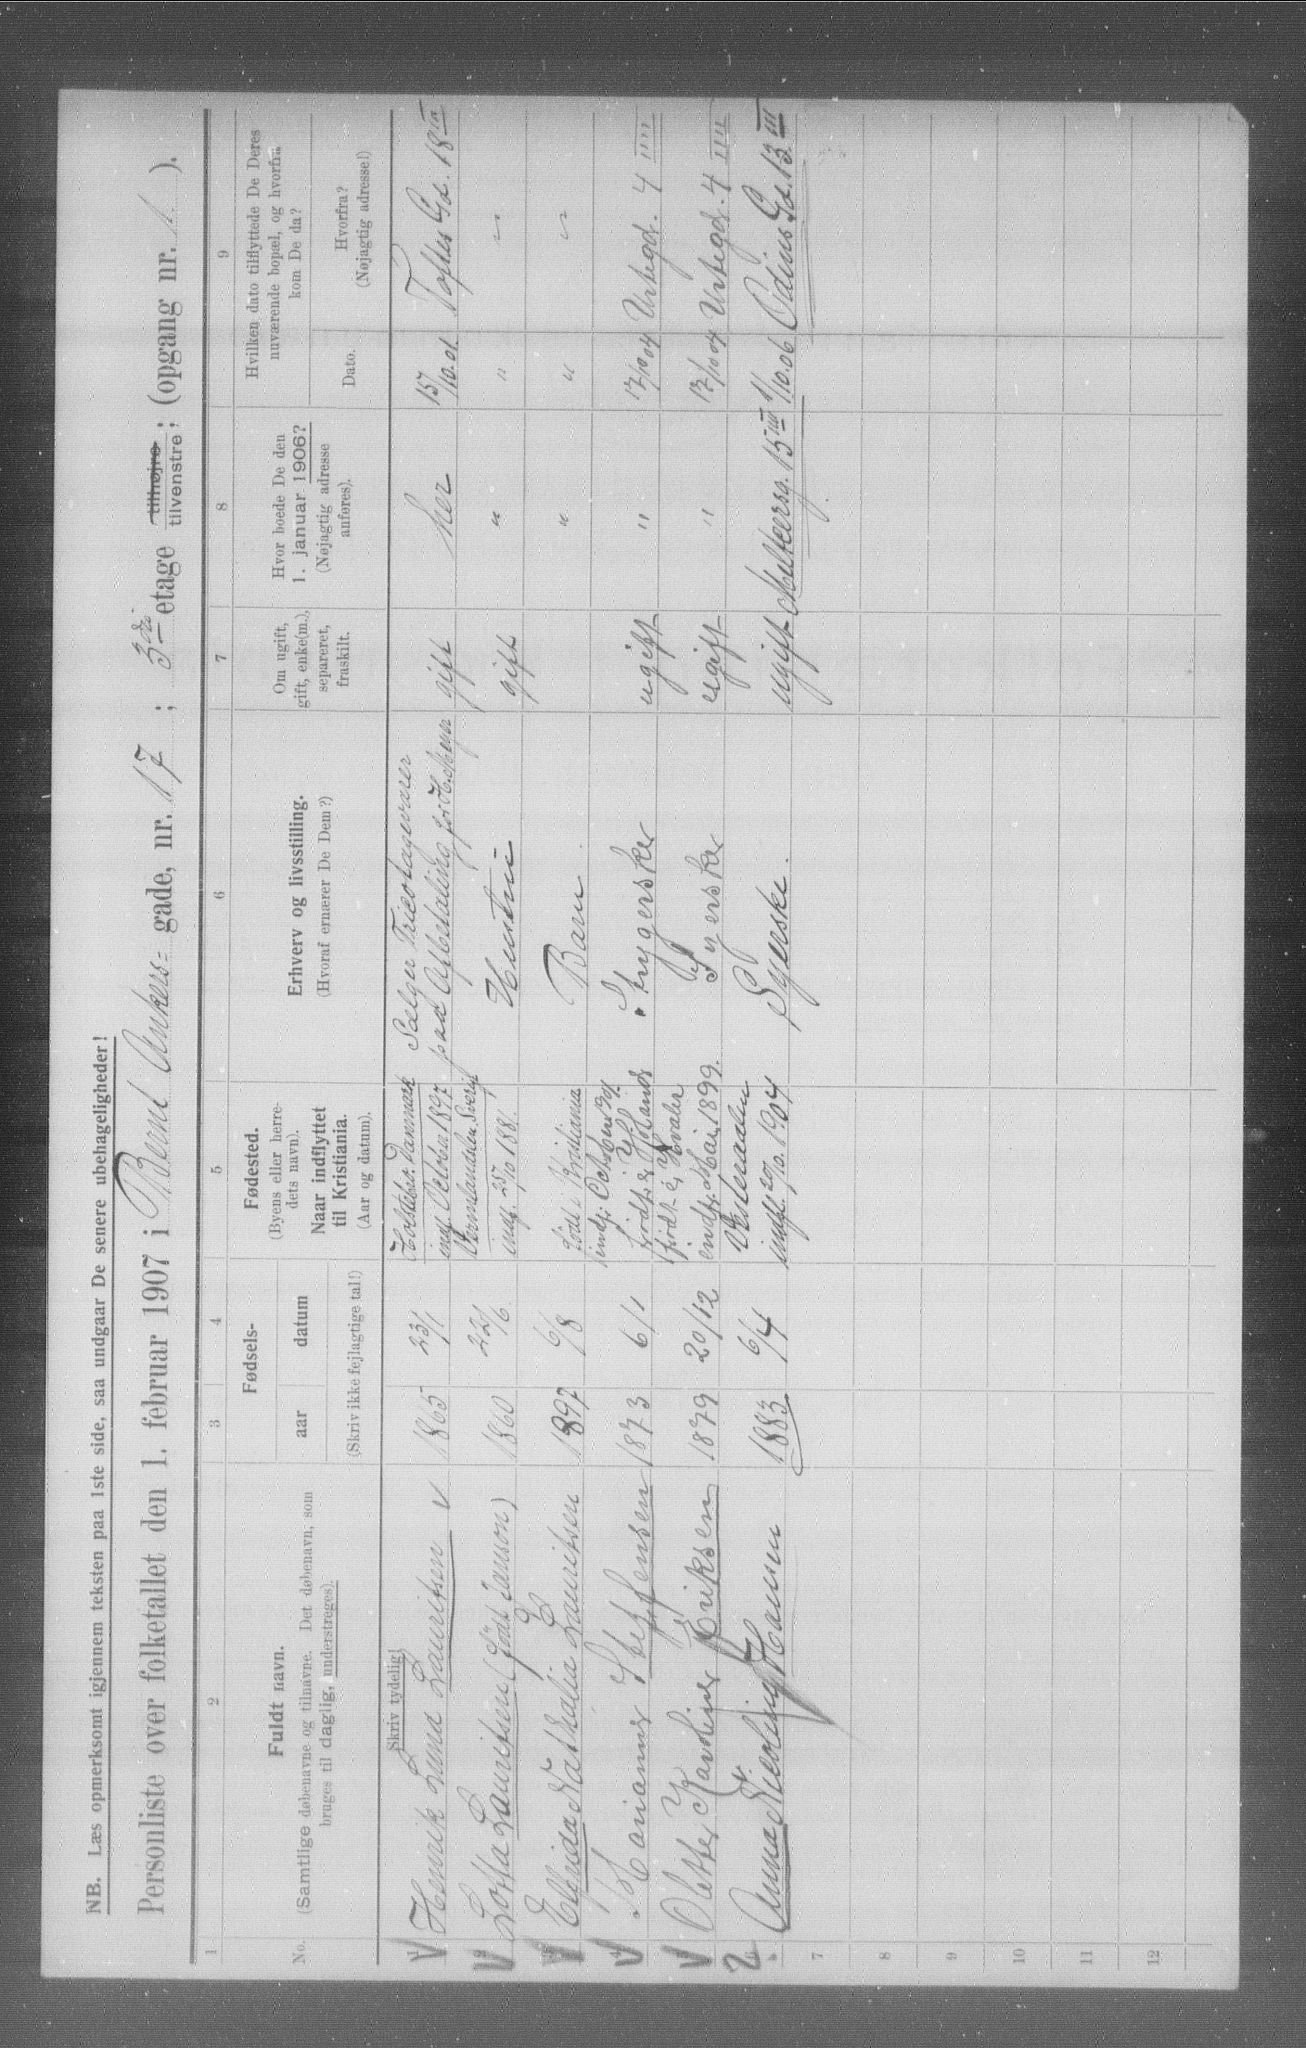 NB. Læs opmerksomt igjennem teksten paa 1ste side, saa undgaar De senere ubehageligheder!
Personliste over folketallet den 1. februar 1907 i Bernt Ankers= gade, nr. 17 ; 3die etage tilhøjre tilvenstre; (opgang nr. 1 ).
1 2 3 4 5 6 7 8 9
No.
Fuldt navn.
(Samtlige døbenavne og tilnavne. Det døbenavn, som
bruges til daglig, understreges).
Fødsels-
aar datum
(Skriv ikke fejlagtige tal!)
Fødested.
(Byens eller herre-
dets navn).
Naar indflyttet
til Kristiania.
(Aar og datum).
Erhverv og livsstilling.
(Hvoraf ernærer De Dem?)
Om ugift,
gift, enke(m.),
separeret,
fraskilt.
Hvor boede De den
1. januar 1906?
(Nøjagtig adresse
anføres).
Hvilken dato tilflyttede De Deres
nuværende bopæl, og hvorfra
kom De da?
Dato.
Hvorfra?
(Nøjagtig adresse!)
Skriv tydelig!
1 Henrik Lund Lauritsen 1865 23/1 Holstebro Danmark indf. October 1897 Sælger Tricotagevarer paa Afbetaling for gift her 15/10.01 Toftes Gd. 18
2 Lotta Lauritsen (født Janson) 1860 22/6 Vermlandslen. Sverig indf. 25/10 1881 Hustru gift " " "
3 Elfrida Nathalia E Lauritsen 1897 6/8 født i Kristiania Barn " " "
4 Marianne Steffensen 1873 6/1 indf. October født i Strygerske ugift " 17/10 04 Urtegd. 4 IIII
5 Olette Karoline Eriksen 1879 20/12 født i Hvaler indf. Mai 1899. Syerske ugift " 17/10 04 Urtegd. 4 IIII
6 Anna Nicoline Hansen 1883 6/4 indf. 20/10. 1904 Syerske. ugift 15 1/10.06 Odins Gd. 13 III
7
8
9
10
11
12